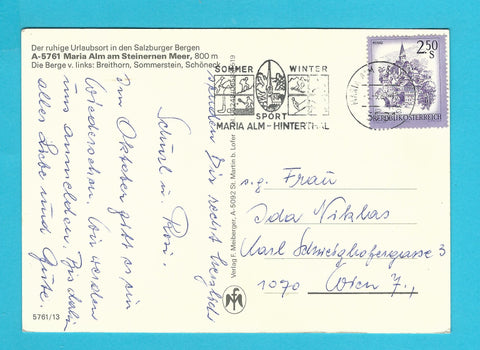 Der ruhige Urlaubsort in den Salzburger Bergen
A-5761 Maria Alm am Steinernen Meer, 800 m
Die Berge v. links: Breithorn, Sommerstein, Schöneck
Im Oktober gibt es ein
Wiedersehen. Wir werden
uns anmelden. Bis dahin
alles Liebe und Gute.
senden Dir recht herzlich
u. Resi.
5761/13
Verlag F. Meiberger, A-5092 St. Martin b. Lofer
SOMMER WINTER
SPORT
MARIA ALM - HINTERTHAL
2.50
S
REPUBLIK ÖSTERREICH
s.g. Frau
Ida Niklas
Karl Schweighofergasse 3
1070 Wien 7.,